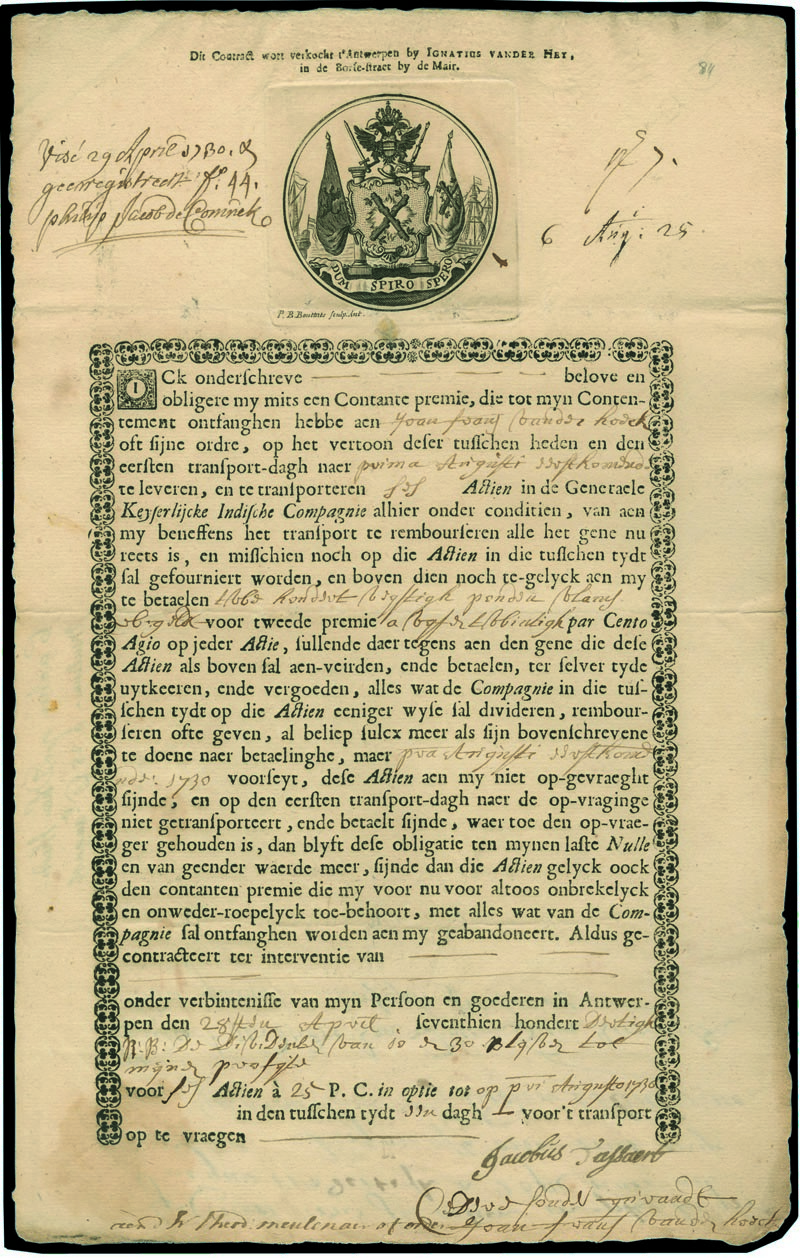 Dit Contract wort verkocht t'Antwerpen by IGNATIUS VANDER HEY,
in de Borse-straet by de Mair.
84
Visé 29 April 1730. &
geeregistreert f.º 44.
Jacob de
7.
6 Aug: 25
DUM SPIRO SPERO
P. B. Bouttats sculp. Ant.
ICk onderschreve belove en
obligere my mits een Contante premie, die tot myn Conten-
tement ontfanghen hebbe aen Joan Frans vander
oft sijne ordre, op het vertoon deser tusschen heden en den
eersten transport-dagh naer prima Augusti
te leveren, en te transporteren ses Actien in de Generaele
Keyserlijcke Indische Compagnie alhier onder conditien, van aen
my beneffens het transport te rembourseren alle het gene nu
reets is, en misschien noch op die Actien in die tusschen tydt
sal gefourniert worden, en boven dien noch te-gelyck aen my
te betaelen hondert ponden vlams
voor tweede premie a par Cento
Agio op jeder Actie, sullende daer tegens aen den gene die dese
Actien als boven sal aen-veirden, ende betaelen, ter selver tyde
uytkeeren, ende vergoeden, alles wat de Compagnie in die tus-
schen tydt op die Actien eeniger wyse sal divideren, rembour-
seren ofte geven, al beliep sulcx meer als sijn bovenschrevene
te doene naer betaelinghe, maer Augusti
1730 voorseyt, dese Actien aen my niet op-gevraeght
sijnde, en op den eersten transport-dagh naer de op-vraginge
niet getransporteert, ende betaelt sijnde, waer toe den op-vrae-
ger gehouden is, dan blyft dese obligatie ten mynen laste Nulle
en van geender waerde meer, sijnde dan die Actien gelyck oock
den contanten premie die my voor nu voor altoos onbrekelyck
en onweder-roepelyck toe-behoort, met alles wat van de Com-
pagnie sal ontfanghen worden aen my geabandoneert. Aldus ge-
contracteert ter interventie van
onder verbintenisse van myn Persoon en goederen in Antwer-
pen den 28sten April seventhien hondert Dertigh
N: B: De van 10 & 30 blyven tot
mynen profyte
voor ses Actien à 25 P. C. in optie tot op Augusto 1730
in den tusschen tydt een dagh voor't transport
op te vraegen
Jacobus
aen Joan Frans vander